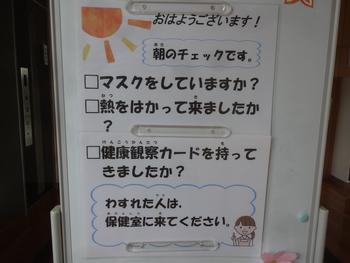 おはようございます！
朝のチェックです。
□マスクをしていますか？
□熱をはかって来ましたか
？
□健康観察カードを持って
きましたか？
わすれた人は、
保健室に来てください。